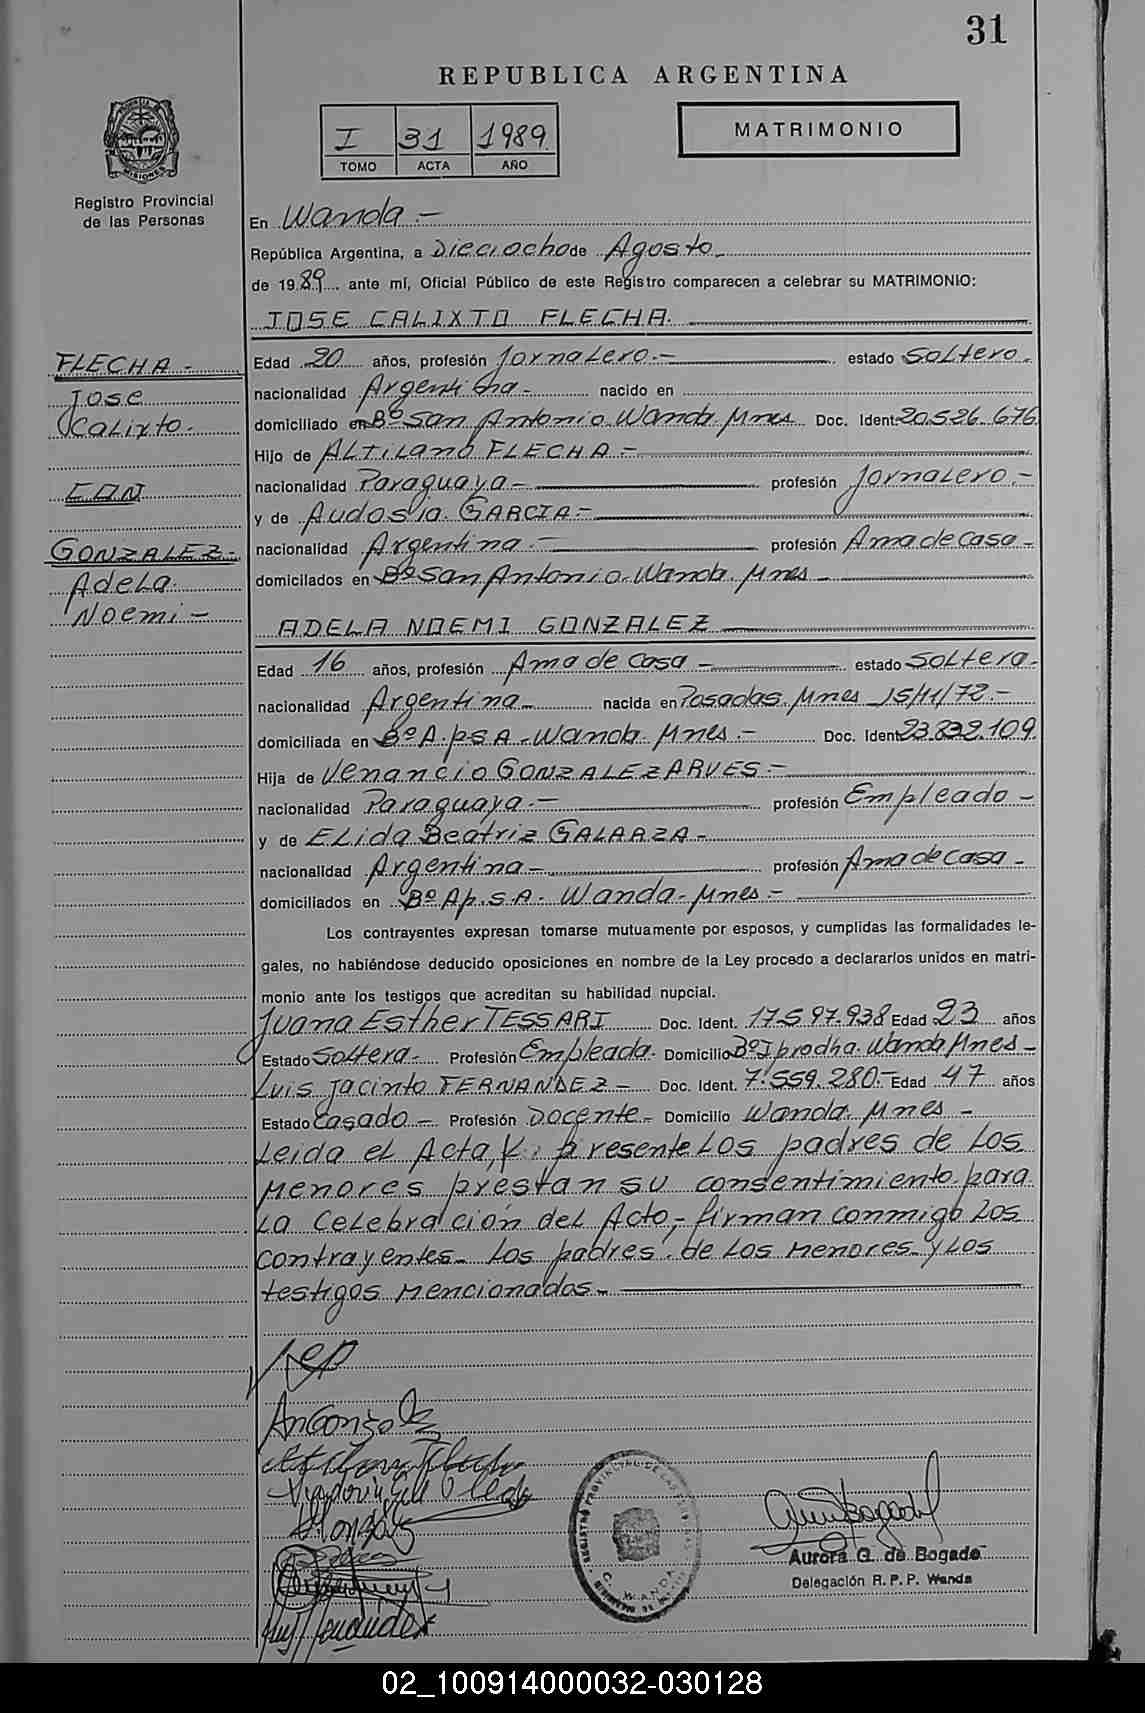 31
REPUBLICA ARGENTINA
I 31 1989
TOMO ACTA AÑO
MATRIMONIO
MISIONES
Registro Provincial
de las Personas
En Wanda.-
República Argentina, a Dieciocho de Agosto.-
de 1989 ante mí, Oficial Público de este Registro comparecen a celebrar su MATRIMONIO:
JOSE CALIXTO FLECHA.
FLECHA.-
Jose
Calixto.-
CON
GONZALEZ.-
Adela
Noemi-
Edad 20 años, profesión Jornalero.- estado Soltero.-
nacionalidad Argentina.- nacido en
domiciliado en Bº San Antonio. Wanda. Mnes Doc. Ident. 20.526.676
Hijo de ALTILANO FLECHA.-
nacionalidad Paraguaya.- profesión Jornalero.-
y de Audosia GARCIA.-
nacionalidad Argentina.- profesión Ama de Casa-
domicilados en Bº San Antonio. Wanda. Mnes-
ADELA NOEMI GONZALEZ
Edad 16 años, profesión Ama de Casa- estado Soltera-
nacionalidad Argentina- nacida en Posadas. Mnes 15/11/72.-
domiciliada en Bº A.p.S.A - Wanda. Mnes.- Doc. Ident. 23.832.109
Hija de Venancio GONZALEZ ARVES.-
nacionalidad Paraguaya.- profesión Empleado-
y de Elida Beatriz GALARZA-
nacionalidad Argentina- profesión Ama de Casa-
domiciliados en Bº Ap.S.A. Wanda-Mnes-
Los contrayentes expresan tomarse mutuamente por esposos, y cumplidas las formalidades le-
gales, no habiéndose deducido oposiciones en nombre de la Ley procedo a declararlos unidos en matri-
monio ante los testigos que acreditan su habilidad nupcial.
Juana Esther TESSARI Doc. Ident. 17.597.938 Edad 23 años
Estado Soltera- Profesión Empleada. Domicilio Bº Iprodha. Wanda Mnes-
Luis Jacinto FERNANDEZ- Doc. Ident. 7.559.280.- Edad 47 años
Estado Casado- Profesión Docente- Domicilio Wanda. Mnes-
Leida el Acta, presente Los padres de Los
Menores prestan su consentimiento para
La Celebración del Acto,- firman conmigo Los
Contrayentes- Los padres de Los Menores- y Los
testigos Mencionados-
Aurora G. de Bogado
Delegación R. P. P. Wanda
02_100914000032-030128